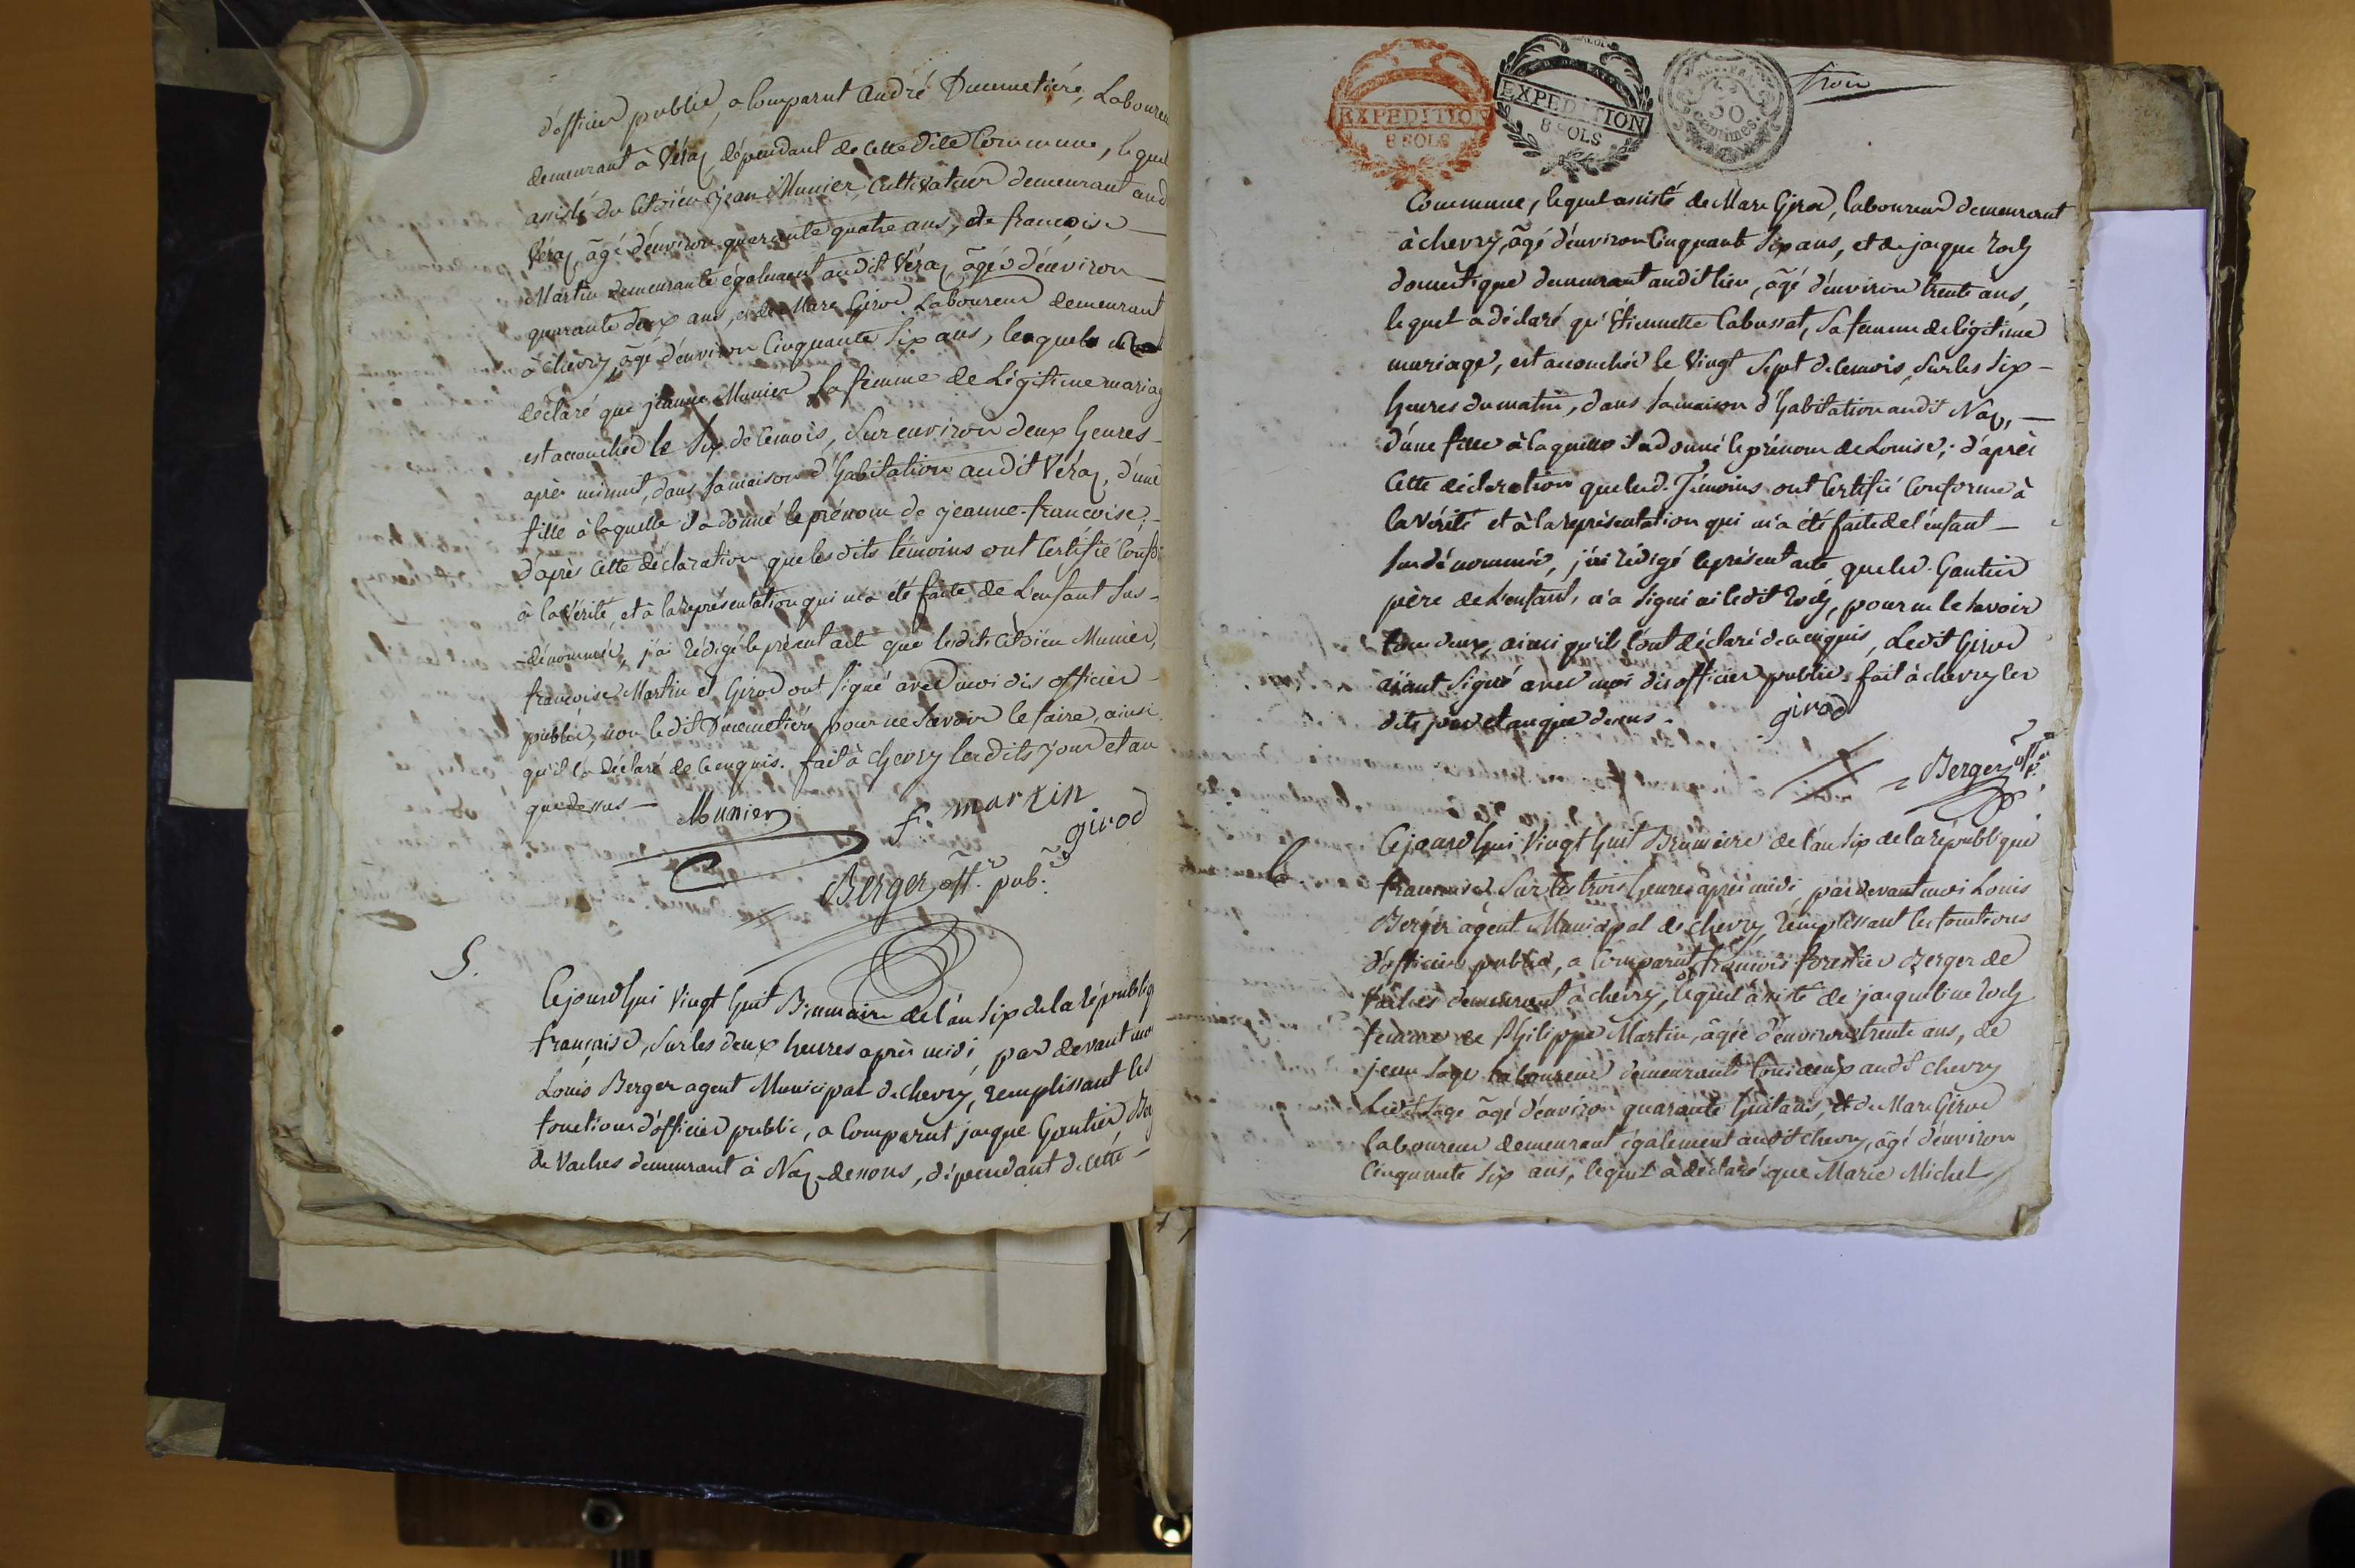 d'officier public, a Comparut André Dumetiére, Laboureu
demeurant à Véraz dépendant de cette dite Commune, lequel
assisté du Citoïen jean Munier, Cultivateur demeurant aud
Véraz, âgé d'environ quarante quatre ans, de francoise
Martin demeurante également audit Véraz âgée d'environ
quarante deux ans, et de Marc Girod Laboureur demeurant
à chevry, âgé d'environ Cinquante Six ans, lequel a
déclaré que jeanne Munier sa femme de Légitime mariag
est accouchée le Six de Cemois, Sur environ deux heures
après minuit, dans sa maison d'habitation audit Véraz, d'une
fille à laquelle il a donné le prénom de jeanne-francoise;
d'après Cette déclaration que lesdits témoins ont Certifié Confo
à la Vérité, et à la représentation qui m'a été faite de L'enfant Sus-
-dénommé, j'ai rédigé le présent acte que lesdits Citoïen Munier,
francoise Martin et Girod ont Signé avec moi dis officier
public, non ledit Dumetiére pour ne Savoir le faire, ainsi
qu'il l'a déclaré de Cenquis. fait à chevry lesdits jour et an
que dessus —
Munier
f. martin
girod
Berger off.r pub.c
5.
Cejourd'hui Vingt huit Brumaire de l'an Six de la républiq
francaise, Sur les deux heures après midi par devant mo
Louis Berger agent Municipal de chevry, remplissant les
fonctions d'officier public, a Comparut jacque Gautier Ber
de Vaches demeurant à Naz-dessous, dépendant de Cette
EXPEDITION
8 SOLS
EXPEDITION
8 SOLS
50
Centimes.
trois
Commune, lequel assisté de Marc Girod, laboureur demeurant
à chevry, âgé d'environ Cinquante Six ans, et de jacque Roch
domestique demeurant audit lieu, âgé d'environ trente ans,
lequel a déclaré qu'Etiennette Cabussat, Sa femme de légitime
mariage, est accouchée le Vingt Sept de Cemois, Sur les Six
heures du matin, dans sa maison d'habitation audit Naz,
d'une fille à laquelle il a donné le prénom de Louise; d'après
Cette déclaration que lesd. Témoins ont Certifié Conforme à
la Vérité et à la représentation qui m'a été faite de l'enfant
Susdénommé, j'ai rédigé le présent acte que led. Gautier
père de L'enfant, n'a Signé ni ledit Roch, pour ne le Savoir
tous deux, ainsi qu'ils l'ont déclaré de Cenquis, Ledit Girod
aïant Signé avec moi dis officier public. fait à chevry les
dits jour et an que dessus.
girod
Berger off.r p.c
6.
Cejourd'hui Vingt huit Brumaire de l'an Six de la république
francaise, Sur les trois heures après midi, par devant moi Louis
Berger agent Municipal de chevry, remplissant les fonctions
d'officier public, a Comparut francois forestier Berger de
Vaches demeurant à chevry, lequel assisté de jacqueline Roch
femme de Philippe Martin, âgée d'environ trente ans, de
jean Sage laboureur demeurants tous deux audt chevry
Ledit Sage âgé d'environ quarante huit ans, et de Marc Girod
laboureur demeurant également audit chevry, âgé d'environ
Cinquante Six ans, lequel a déclaré que Marie Michel